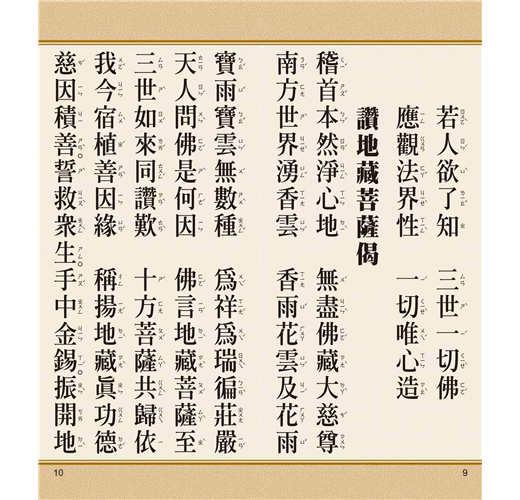 若人欲了知　三世一切佛
應觀法界性　一切唯心造
讚地藏菩薩偈
稽首本然淨心地　無盡佛藏大慈尊
南方世界湧香雲　香雨花雲及花雨
寶雨寶雲無數種　為祥為瑞徧莊嚴
天人問佛是何因　佛言地藏菩薩至
三世如來同讚歎　十方菩薩共歸依
我今宿植善因緣　稱揚地藏眞功德
慈因積善誓救衆生。手中金錫振開地
9
10